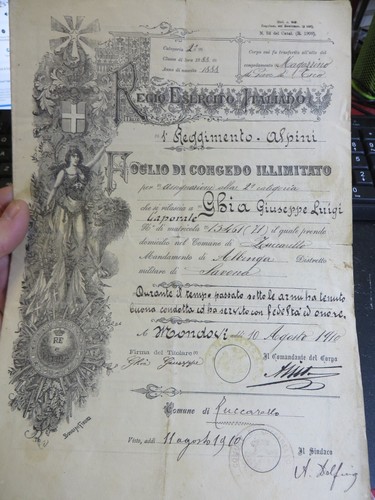 Categoria 2ª
Classe di leva 1888
Anno di nascita 1888
Corpo cui fu trasferto all'atto del
compimento
Magazzino
REGIO ESERCITO ITALIANO
1° Reggimento - Alpini
FOGLIO DI CONGEDO ILLIMITATO
per assegnazione alla 2ª categoria
che si rilascia a Ghia Giuseppe Luigi
Caporale
N° di matricola 15451 (71) il quale prende
domicilio nel Comune di Zuccarello
Mandamento di Albenga Distretto
militare di Savona
Durante il tempo passato sotto le armi ha tenuto
buona condotta ed ha servito con fedeltà ed onore.
A Mondovì li 10 Agosto 1910
Firma del Titolare
Ghia Giuseppe
Il Comandante del Corpo
Comune di Zuccarello
Visto, addì 11 agosto 1910
Il Sindaco